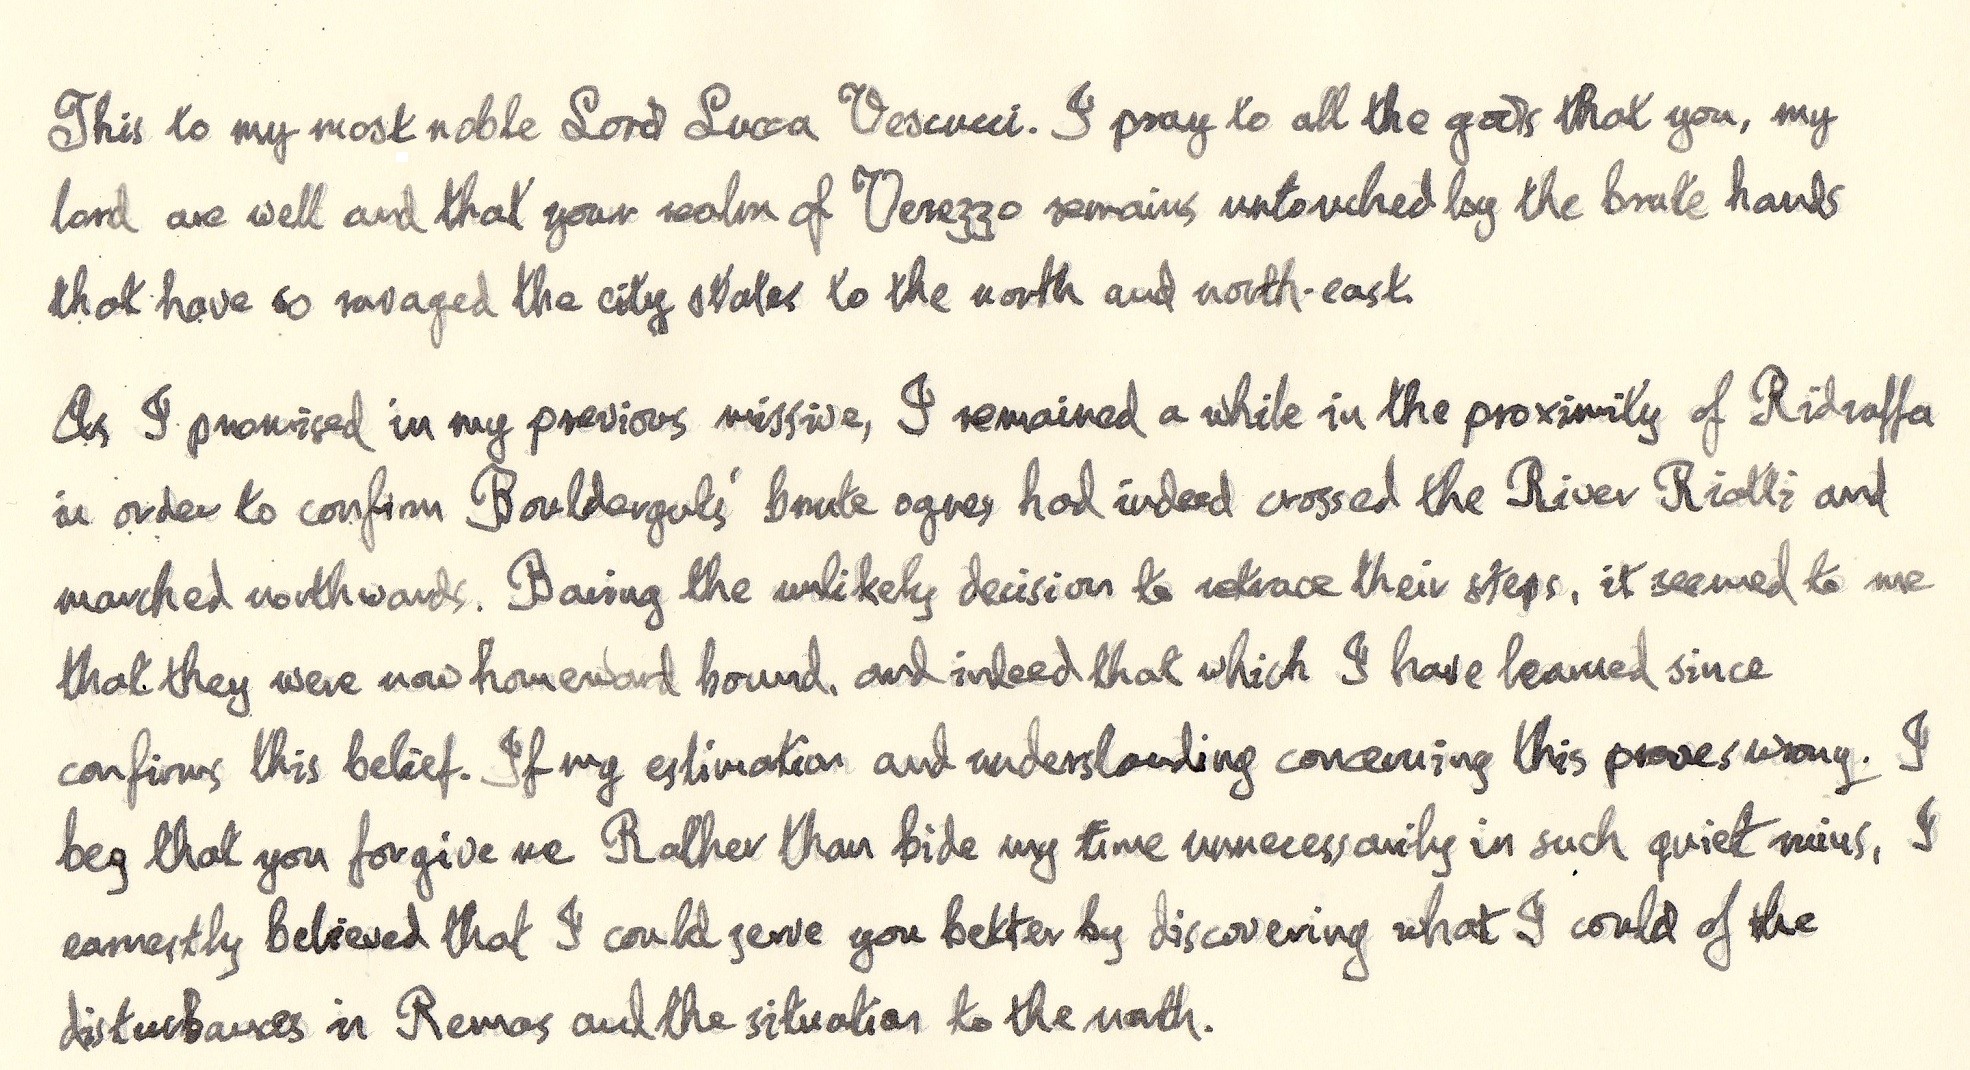 This to my most noble Lord Lucca Vescucci. I pray to all the gods that you, my
lord are well and that your realm of Verezzo remains untouched by the brute hands
that have so ravaged the city states to the north and north-east.
As I promised in my previous missive, I remained a while in the proximity of Ridraffa
in order to confirm Boulderguts' brute ogres had indeed crossed the River Riatti and
marched northwards. Baring the unlikely decision to retrace their steps, it seemed to me
that they were now homeward bound, and indeed that which I have learned since
confirms this belief. If my estimation and understanding concerning this proves wrong. I
beg that you forgive me Rather than bide my time unnecessarily in such quiet ruins, I
earnestly believed that I could serve you better by discovering what I could of the
disturbances in Remas and the situation to the north.